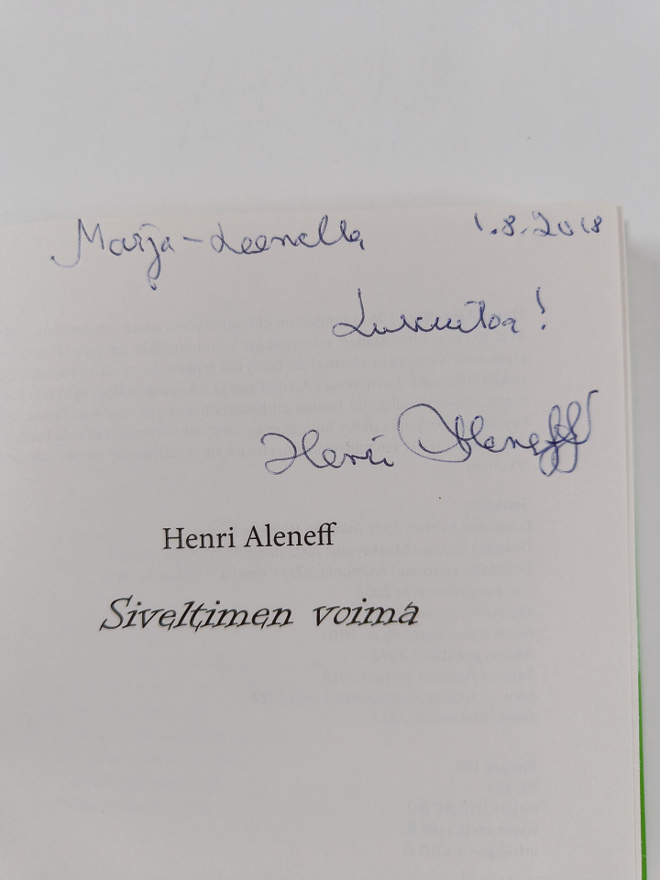 Marja-Leenalle 1.8.2018
Lukuiloa!
Henri Aleneff
Henri Aleneff
Siveltimen voima